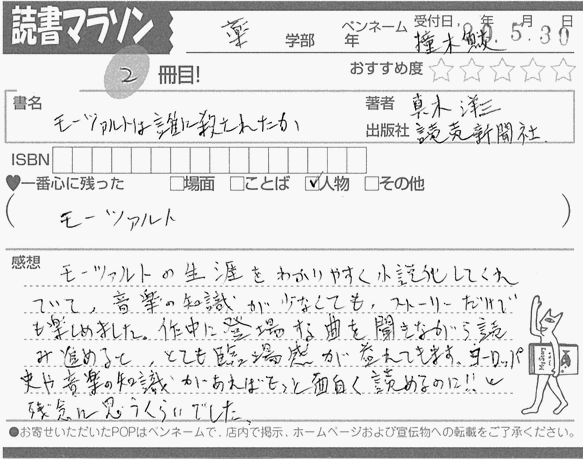 読書マラソン
薬 学部 年
ペンネーム
撞木鮫
受付日 年 月 日
20.5.30
2 冊目!
おすすめ度 ☆☆☆☆☆
書名
モーツァルトは誰に殺されたか
著者 真木洋三
出版社 読売新聞社.
ISBN
♥一番心に残った □場面 □ことば ☑人物 □その他
( モーツァルト )
感想
モーツァルトの生涯をわかりやすく小説化してくれ
ていて、音楽の知識が少なくても、ストーリーだけで
も楽しめました。作中に登場する曲を聞きながら読
み進めると、とても臨場感が益えてきます。ヨーロッパ
史や音楽の知識があればもっと面白く読めるのに!!と
残念に思うくらいでした。
●お寄せいただいたPOPはペンネームで、店内で掲示、ホームページおよび宣伝物への転載をご了承ください。